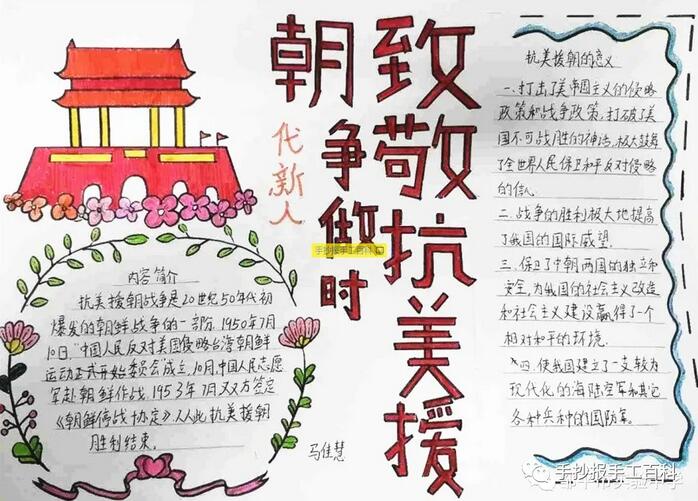 致敬抗美援
朝争做时
代新人
抗美援朝的意义
一、打击了美帝国主义的侵略
政策和战争政策,打破了美
国不可战胜的神话,极大鼓舞
了全世界人民保卫和平反对侵略
的信心
二、战争的胜利极大地提高
了我国的国际威望.
三、保卫了中朝两国的独立和
安全,为我国的社会主义改造
和社会主义建设赢得了一个
相对和平的环境.
四、使我国建立了一支较为
现代化的海陆空军和其它
各种兵种的国防军。
内容简介
抗美援朝战争是20世纪50年代初
爆发的朝鲜战争的一部份.1950年7月
10日,"中国人民反对美国侵略台湾朝鲜
运动正式开始委员会成立,10月,中国人民志愿
军赴朝鲜作战,1953年7月双方签定
《朝鲜停战协定》从此抗美援朝
胜利结束.
马佳慧
手抄报手工百科
手抄报手工百科